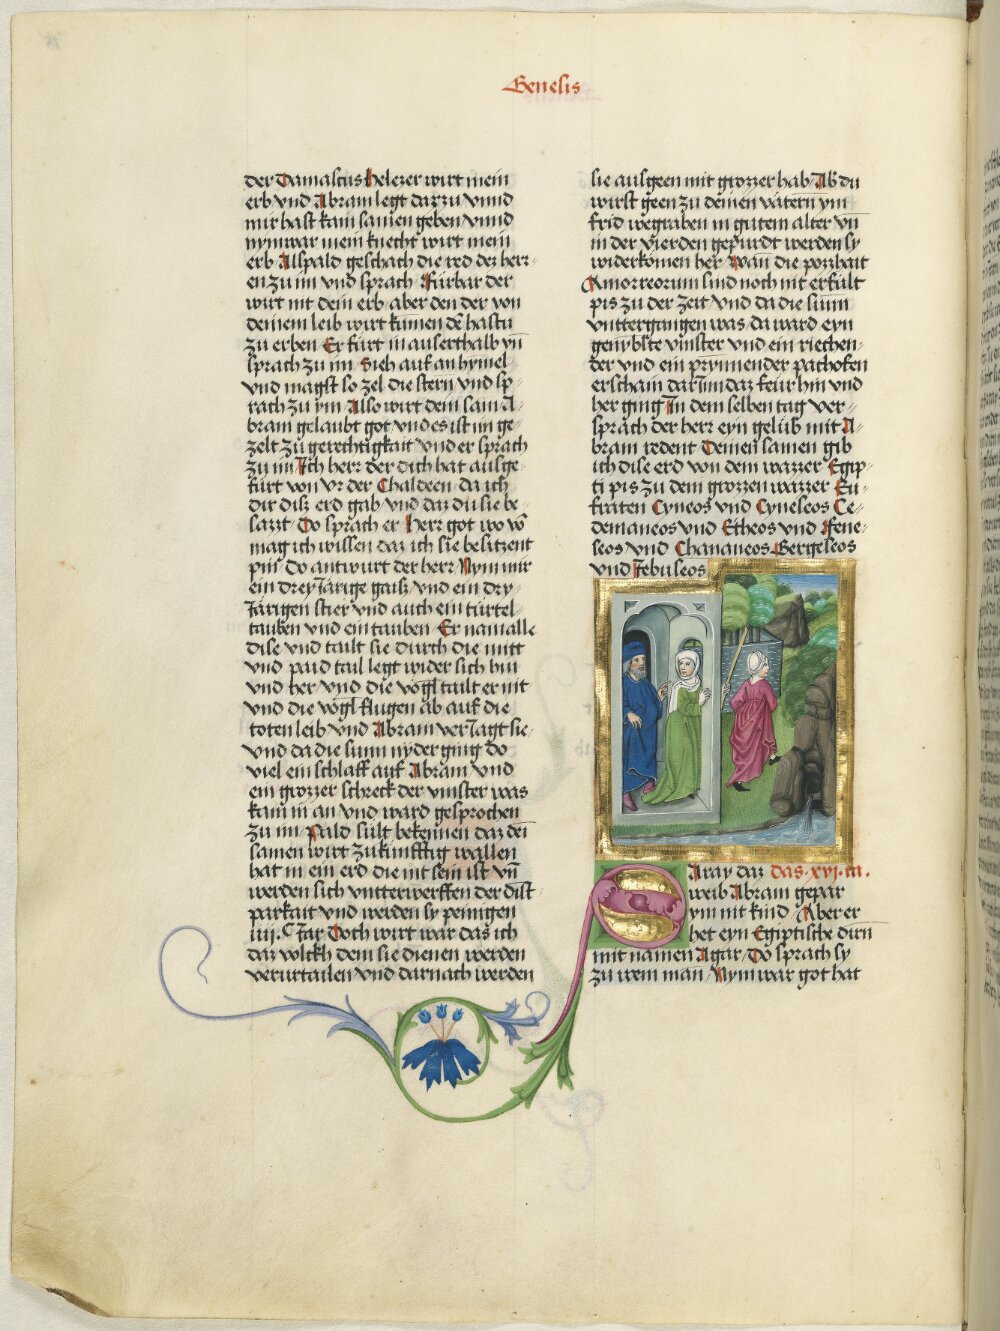 Genesis
der Damascus helezer wirt mein
erb vnd Abram legt darzu vnnd
mir hast kain samen geben vnnd
nym war mein knecht wirt mein
erb Alspald geschach die red des herr-
en zu im vnd sprach Fürbar der
wirt nit dein erb aber den der von
deinem leib wirt kumen de hastu
zu erben Er furt in auserthalb vn
sprach zu im Sieh auf an hymel
vnd magst so zel die stern vnd sp-
rach zu ym Also wirt dein sam A-
bram gelaubt got vnd es ist im ge-
zelt zu gerechtigkait vnd er sprach
zu im Ich herr der dich hat ausge-
fürt von vr der Chaldeen da ich
dir dise erd gab vnd daz du sie be-
sazzt Do sprach er herr got wo võ
mag ich wissen daz ich sie besitzent
pin Do antwurt der herr Nym mir
ein drey Järige gaiß vnd ein dry-
Järigen stier vnd auch ein türtel-
tauben vnd ein tauben Er nam alle
dise vnd tailt sie durch die mitt
vnd paid tail legt wider sich hin
vnd her vnd die vögl tailt er nit
vnd die vögl flugen ab auf die
toten leib vnd Abram verJagt sie-
vnd da die sunn nyder ging do
viel ein schlaff auf Abram vnd
ein grozzer schreck der vinster was
kam in an vnd ward gesprochen
zu im Pald sült bekennen daz dei
samen wirt zukunfftig wallen
hat in ein erd die nit sein ist vñ
werden sich vntterwerffen der dist-
parkait vnd werden sy peinigen
iiii C Jar Doch wirt war das ich
daz volckh dem sie dienen werden
verurtailen vnd darnach werden
sie ausgeen mit grozzer hab Ab du
wirst geen zu deinen vätern ym
frid wegraben in gutem alter vñ
in der vierden gepurdt werden sy
widerkomen her Wan die pozzhait
Amorreorum sind noch nit erfült
pis zu der zeit vnd da die sunn
vnttergangen was da ward eyn
genyblte vinster vnd ein riechen-
der vnd ein prynnender pachofen
erschain darInn daz feür hin vnd
her ging In dem selben tag ver-
sprach der herr eyn gelüb mit A-
bram redent Deinem samen gib
ich dise erd von dem wazzer Egip-
ti pis zu dem grozzen wazzer Eu-
fraten Cyneos vnd Cyneseos Ce-
demaneos vnd Etheos vnd Fene-
seos vnd Chananeos Gergeseos
vnd Jebuseos
Saray daz das xvi. ca.
weib Abram gepar
ym nit kind Aber er
het eyn Egiptische dirn
mit namen Agar Do sprach sy
zu irem man Nym war got hat